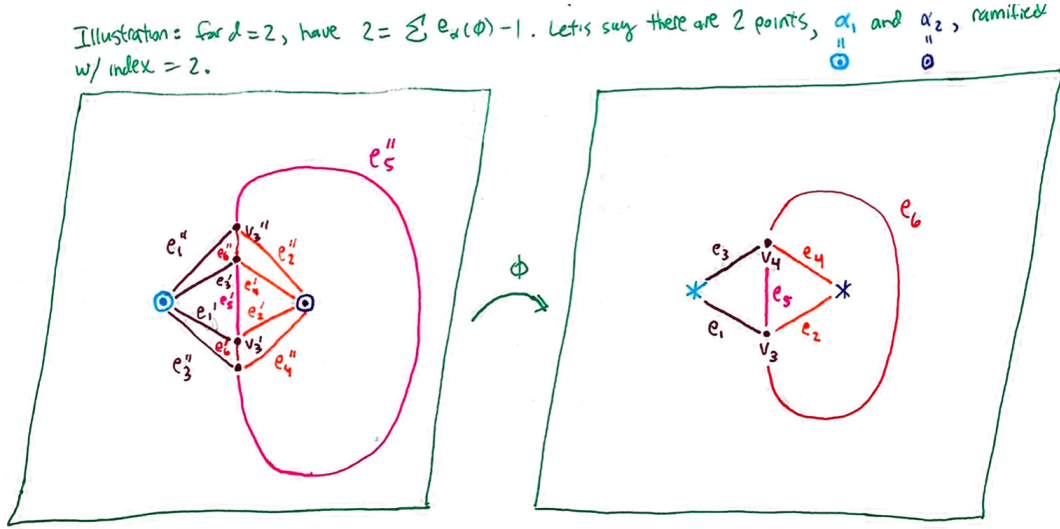 Illustration: for d=2, have 2 = Σ e_α(ϕ) - 1. Let's say there are 2 points, α₁ and α₂, ramified
w/ index = 2.
e₅''
v₃''
e₁''
e₂''
e₆''
e₃'
e₄'
e₅'
e₁'
e₂'
e₆'
v₃'
e₃''
e₄''
ϕ
e₆
e₃
v₄
e₄
e₅
e₁
e₂
v₃